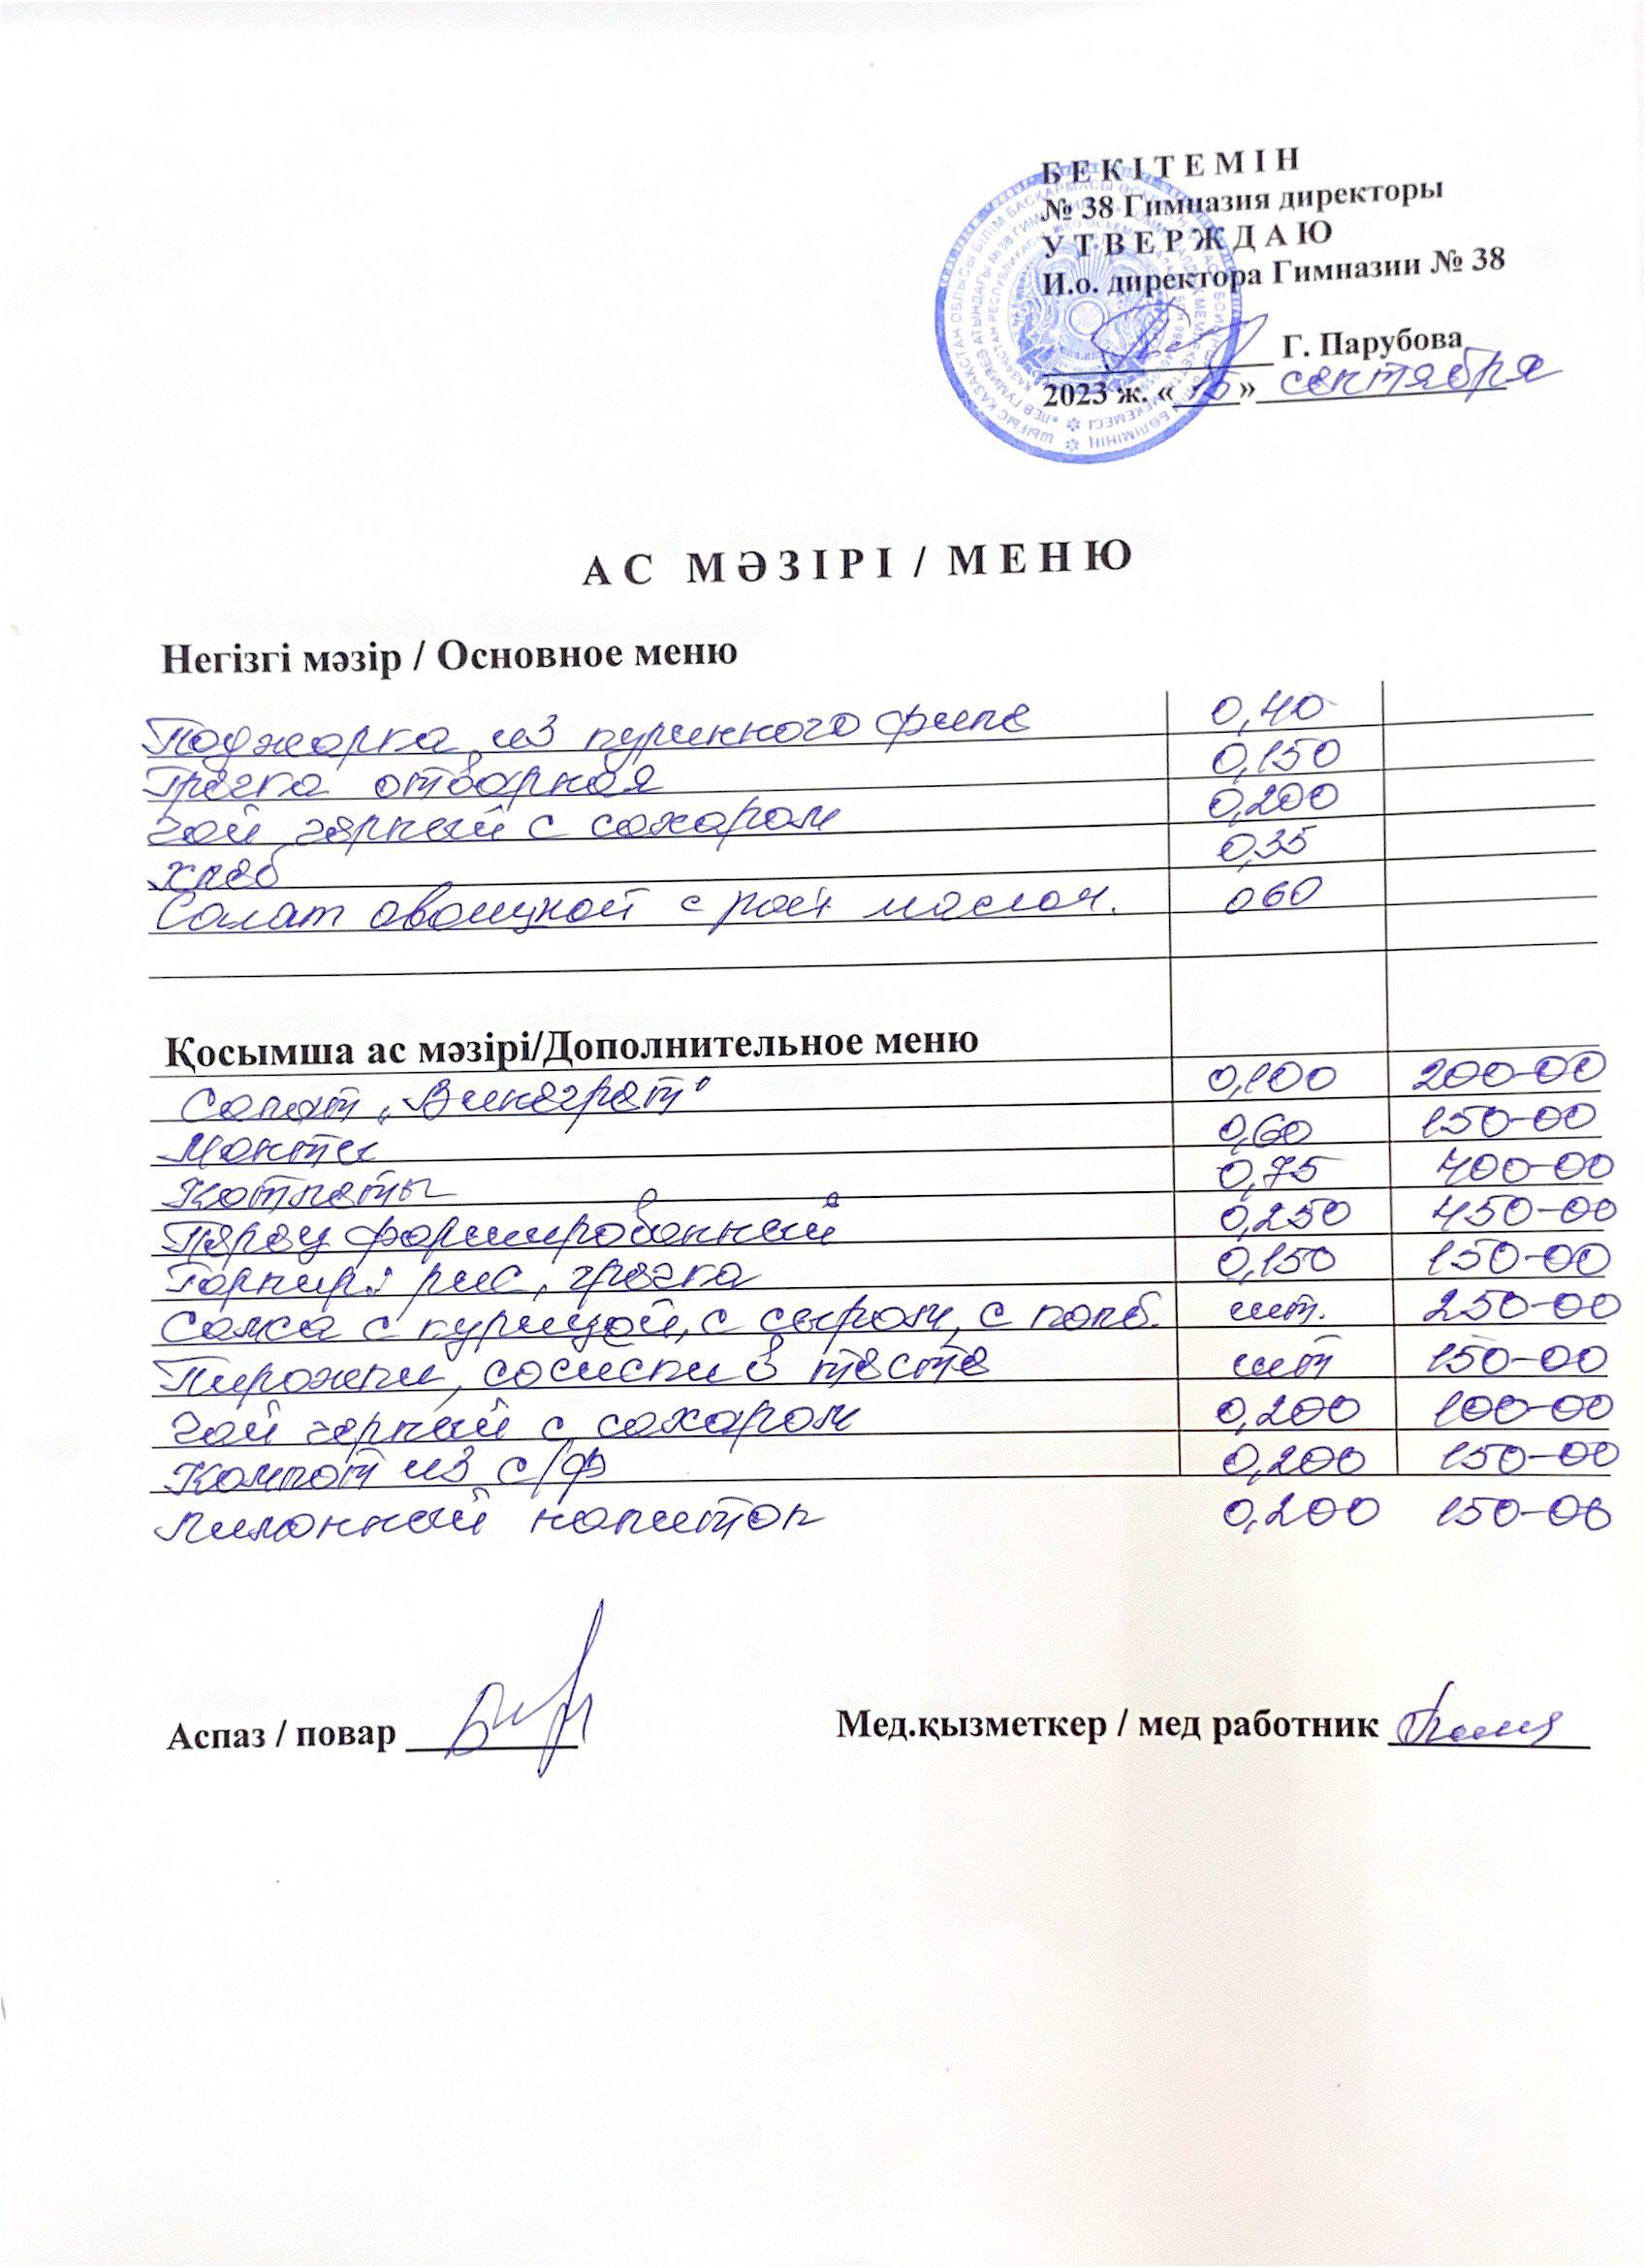 Б Е К І Т Е М І Н
№ 38 Гимназия директоры
У Т В Е Р Ж Д А Ю
И.о. директора Гимназии № 38
Г. Парубова
2023 ж. «15» сентября
А С М Ә З І Р І / М Е Н Ю
Негізгі мәзір / Основное меню
Поджарка из куриного филе 0,40
Гречка отварная 0,150
Чай черный с сахаром 0,200
Хлеб 0,35
Салат овощной с раст маслом. 060
Қосымша ас мәзірі/Дополнительное меню
Салат „Винегрет" 0,100 200-00
Манты 0,60 150-00
Котлеты 0,75 400-00
Перец формированный 0,250 450-00
Гарнир: рис, гречка 0,150 150-00
Самса с курицей, с сыром, с колб. шт. 250-00
Пирожки, сосиски в тесте шт 150-00
Чай черный с сахаром 0,200 100-00
Компот из с/ф 0,200 150-00
Лимонный напиток 0,200 150-00
Аспаз / повар
Мед.қызметкер / мед работник